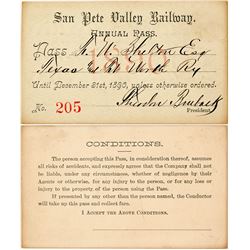 San Pete Valley Railway.
ANNUAL PASS.
1890
Pass
Texas
Until December 31st, 1890, unless otherwise ordered.
No. 205
President
CONDITIONS.
The person accepting this Pass, in consideration thereof, assumes
all risks of accidents, and expressly agrees that the Company shall
not be liable, under any circumstances, whether of negligence by their
Agents or otherwise, for any injury to the person, or for any loss or
injury to the property of the person using the Pass.
If presented by any other than the person named, the Conductor
will take up this pass and collect fare.
I ACCEPT THE ABOVE CONDITIONS.